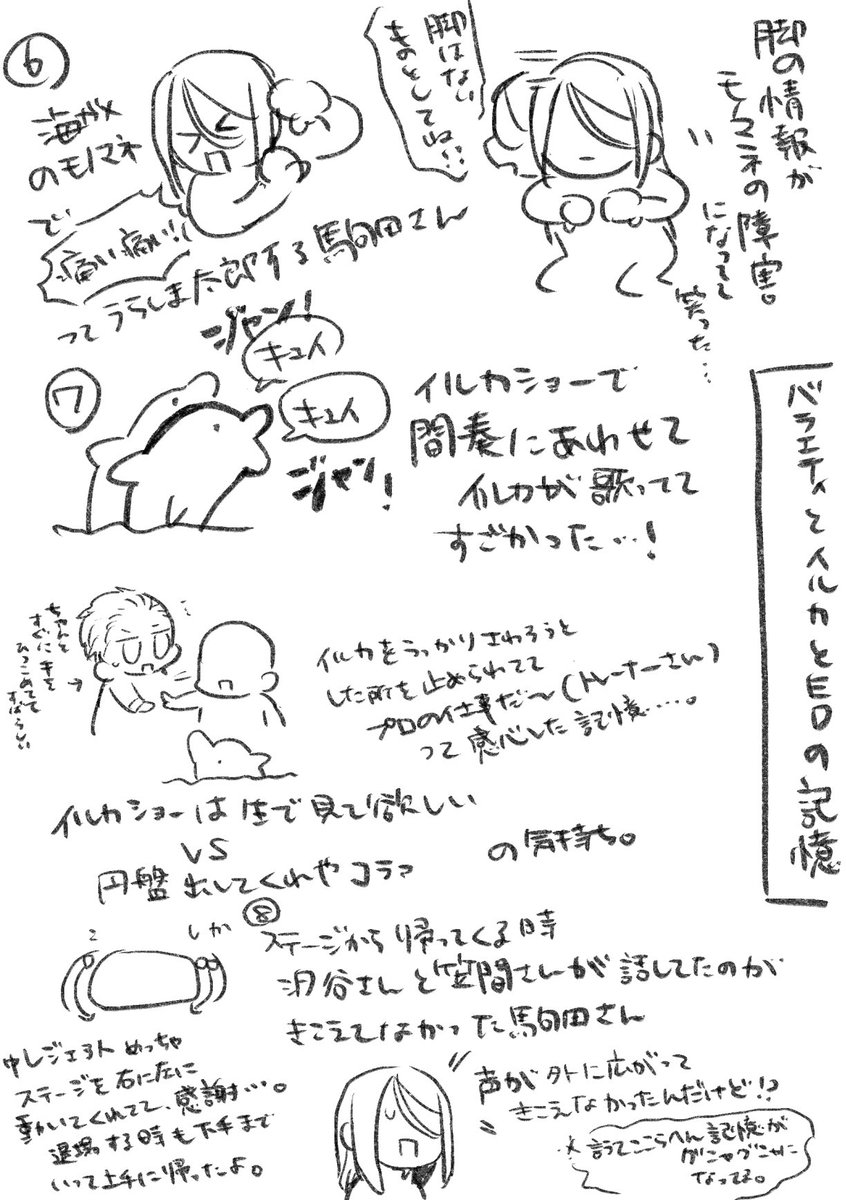 バラエティとイルカとEDの記憶
脚の情報が
モノマネの障害。
になってて
笑った…
脚はない
ものとしてね!!
⑥
海ガメ
のモノマネ
で
痛い痛い!!
ってうらしま太郎する駒田さん
⑦
ジャン!
キュイ
キュイ
ジャン!
イルカショーで
間奏にあわせて
イルカが歌ってて
すごかった…!
ちゃんと
すぐに手を
ひっこめてて
すばらしい
イルカをうっかりさわろうと
した所を止められてて
プロの仕事だ〜(トレーナーさん)
って感心した記憶……。
イルカショーは生で見て欲しい
VS
円盤出してくれやコラァ
の気持ち。
⑧
ステージから帰ってくる時
汐谷さんと笠間さんが話してたのが
きこえてなかった駒田さん
しか
中レジェ3人めっちゃ
ステージを右に左に
動いてくれてて、感謝…。
退場する時も下手まで
いって上手に帰ったよ。
声が外に広がって
きこえなかったんだけど!?
※言ってここらへん記憶が
グニャグニャに
なってる。